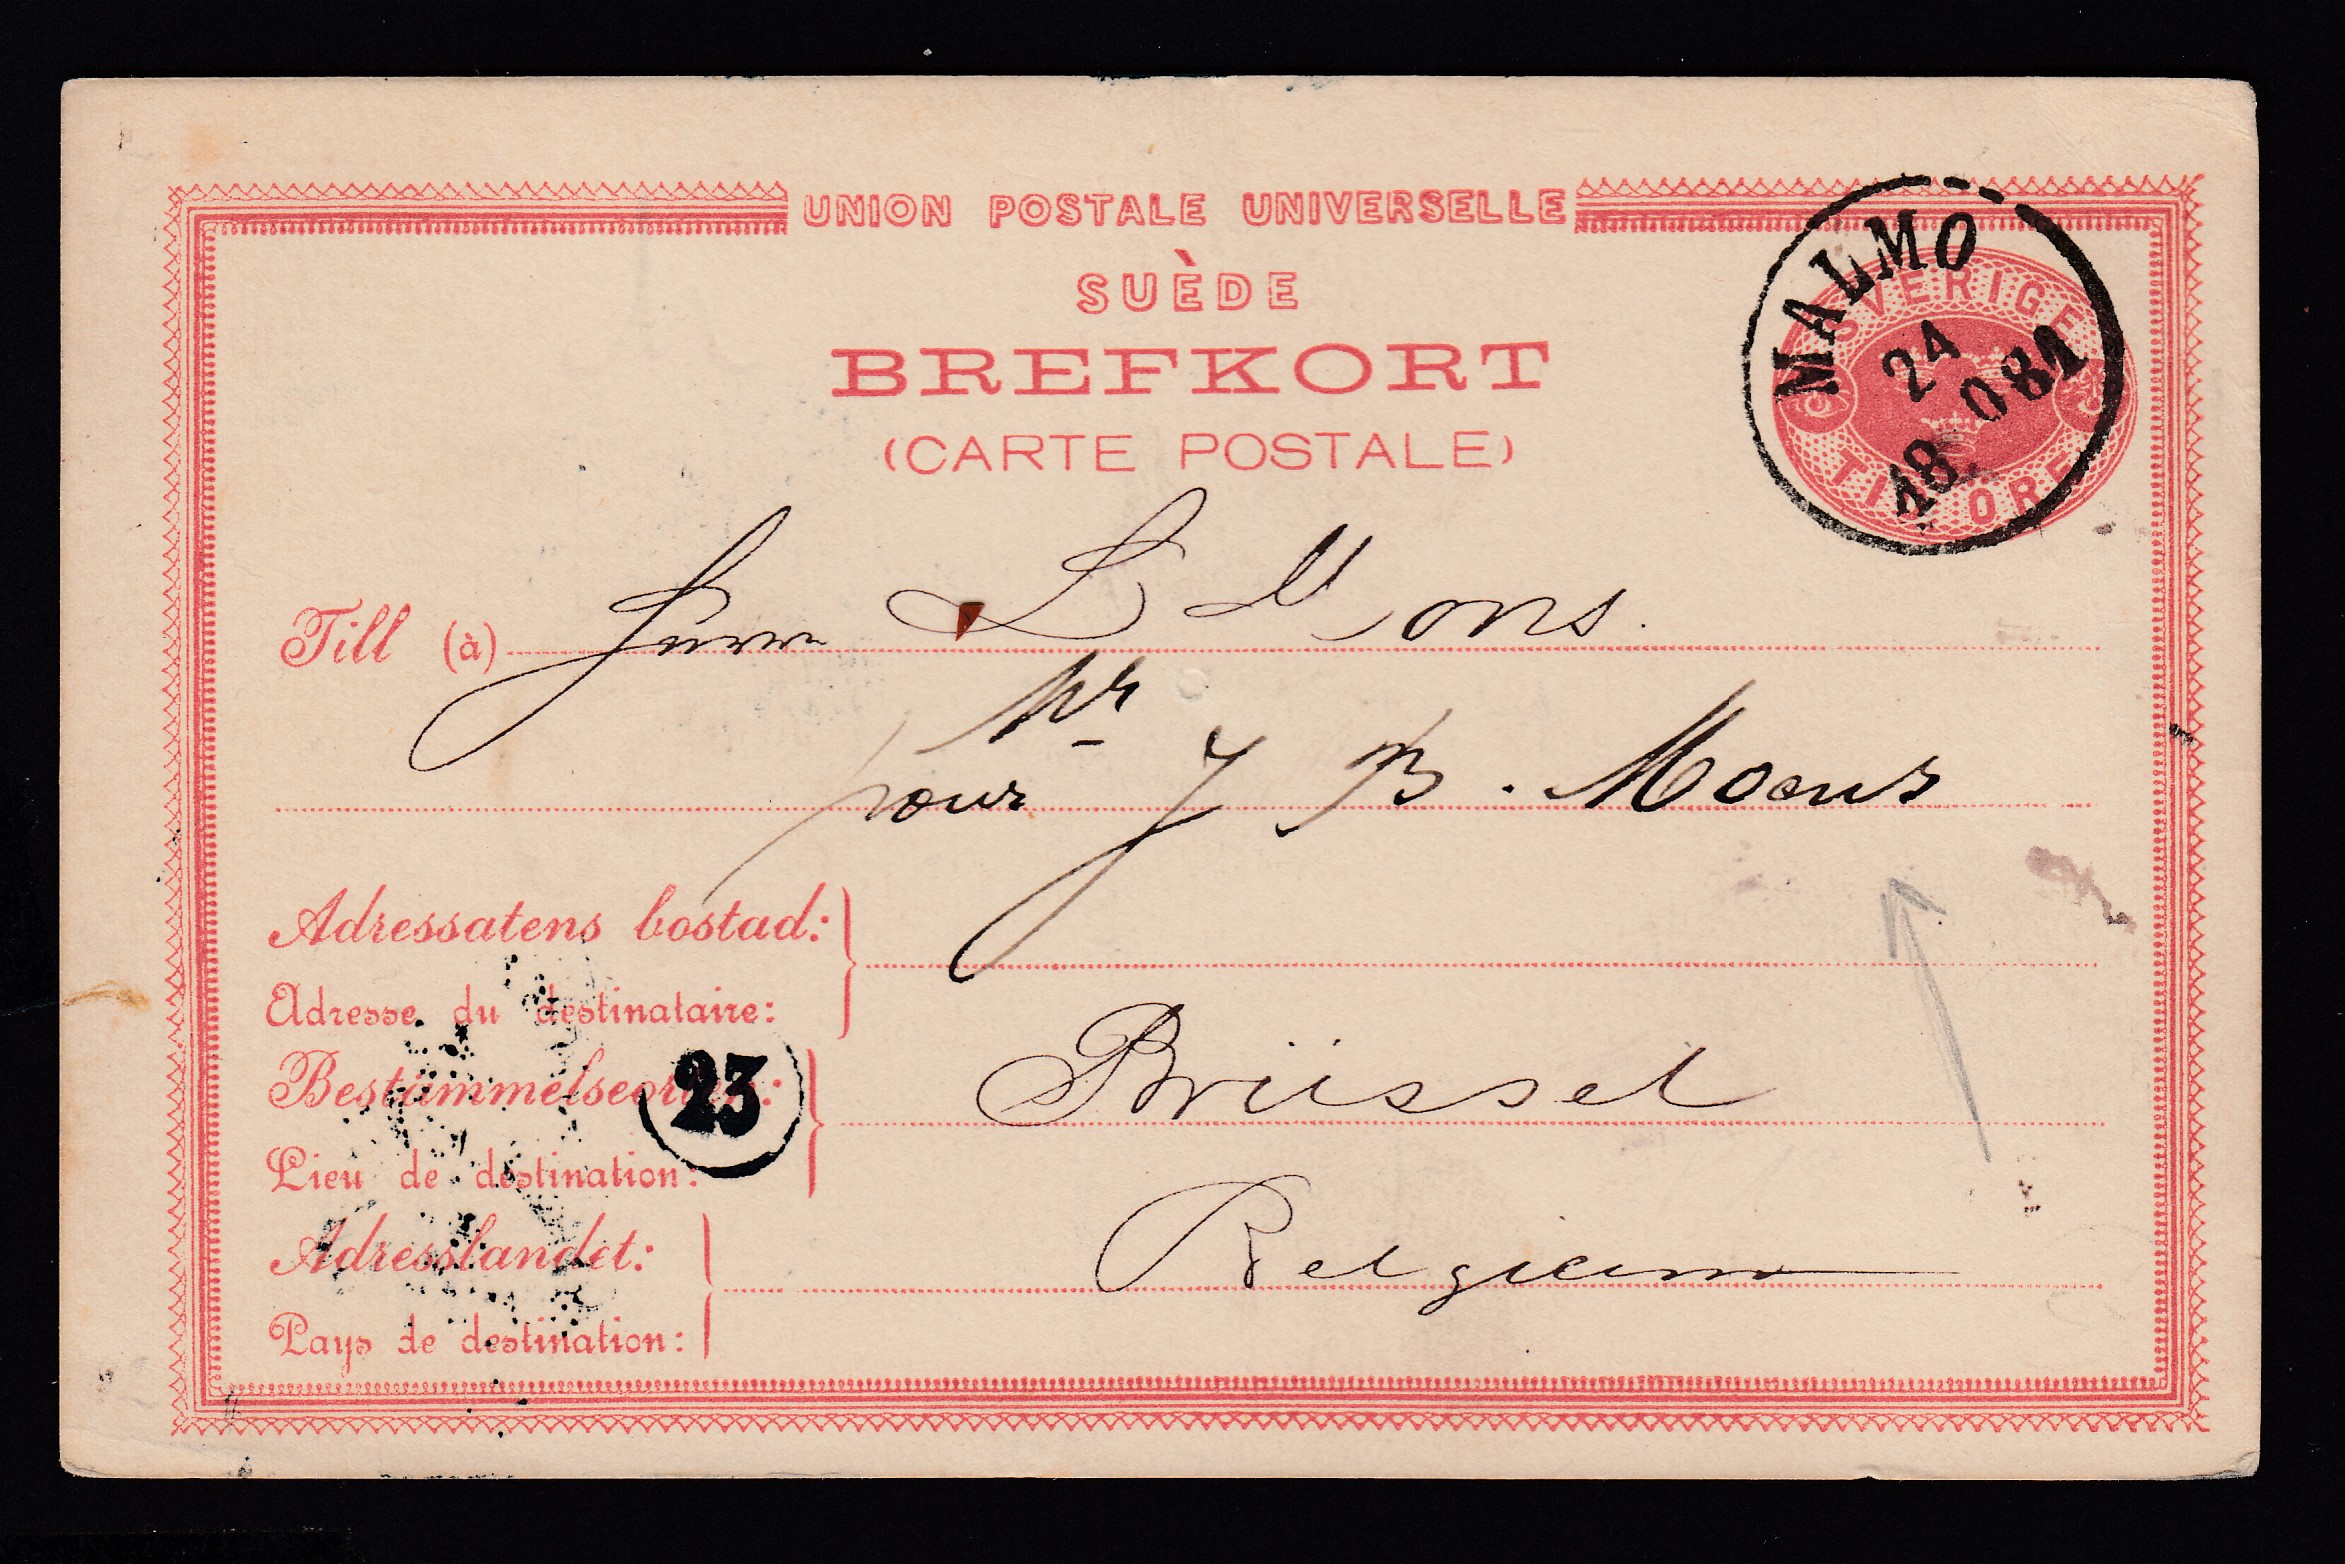 UNION POSTALE UNIVERSELLE
SUÈDE
BREFKORT
(CARTE POSTALE)
SVERIGE
TIO ÖRE
MALMÖ
24
10 81
18
Till (à) Herrn L Mons.
Mr
pour J B. Moens
Adressatens bostad:
Adresse du destinataire:
Bestämmelseorten:
23
Lieu de destination:
Brüssel
Adresslandet:
Belgium
Pays de destination: